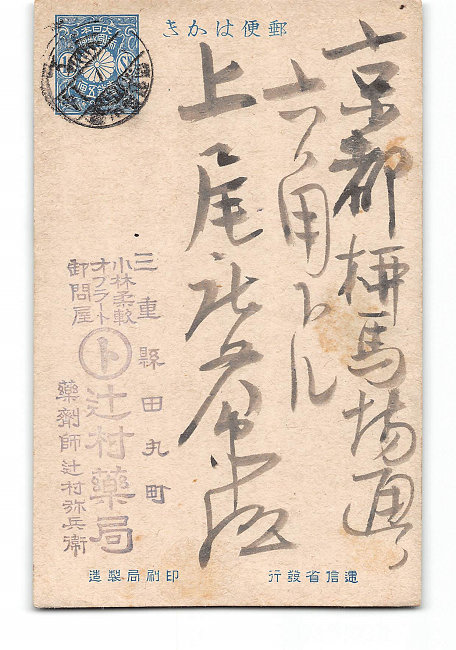 郵便はかき
京都柳馬場通り
六角下ル
上尾
三重縣田丸町
小林柔軟
オブラート
卸問屋
ト
辻村藥局
藥劑師辻村弥兵衛
遞信省發行
印刷局製造